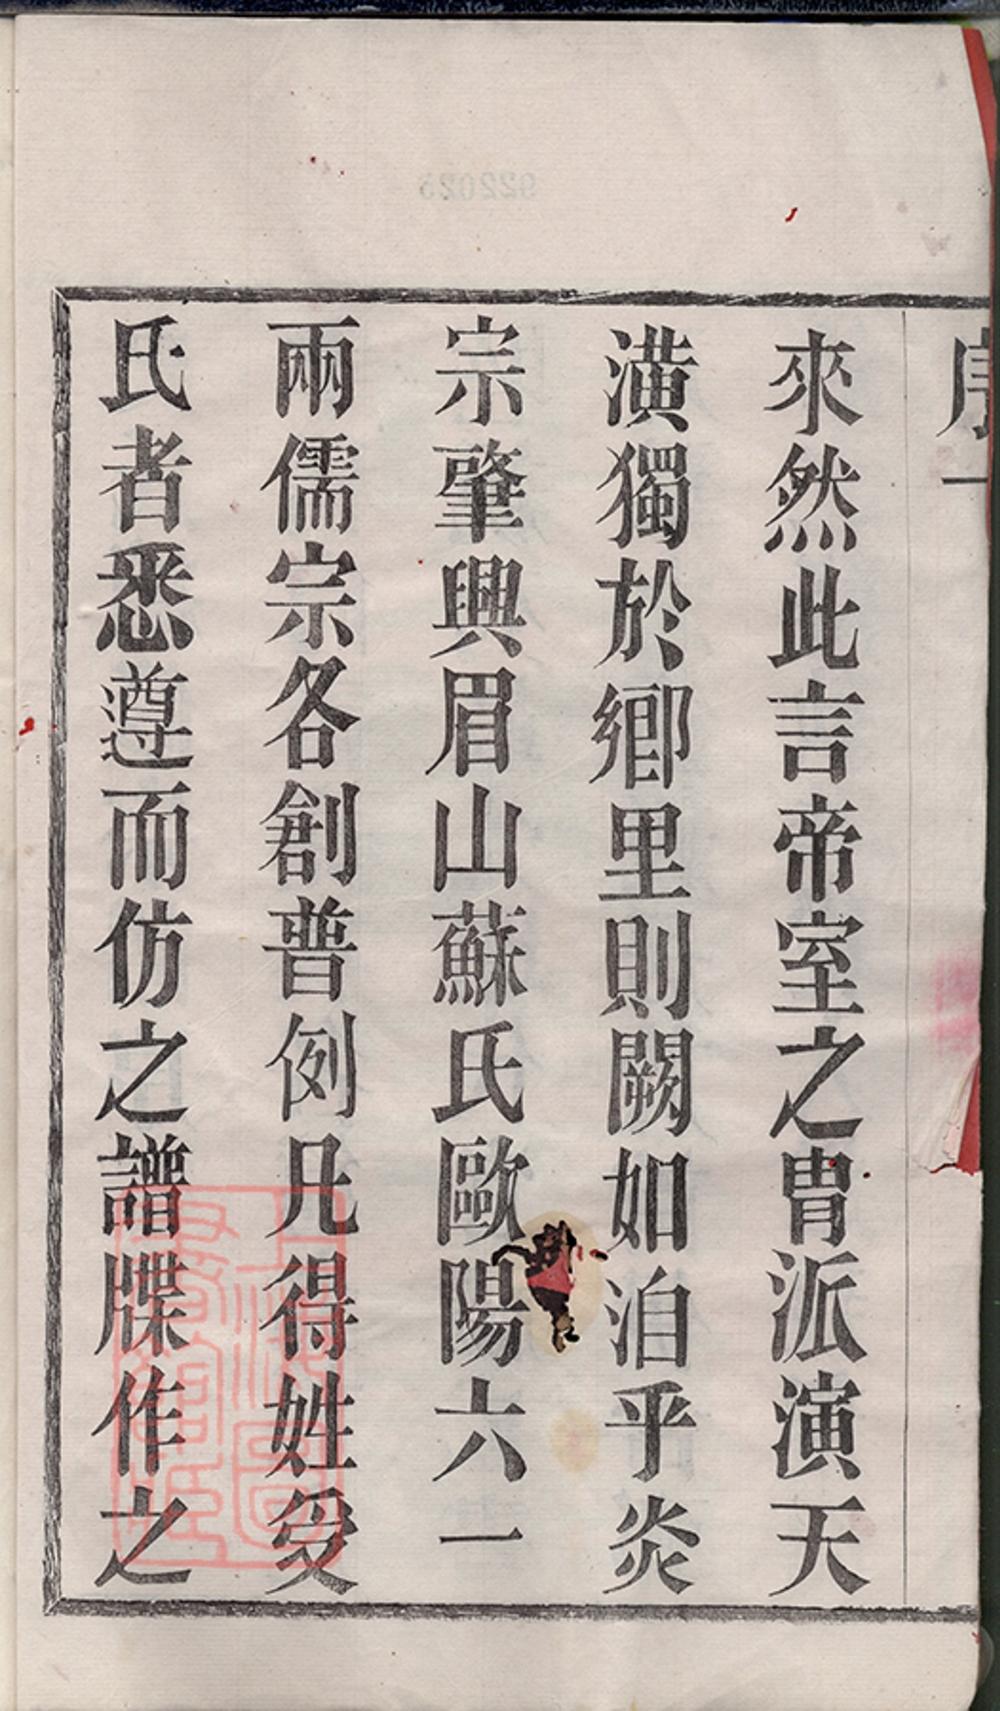 序一
來然此言帝室之冑派演天
潢獨於鄉里則闕如洎乎炎
宗肇興眉山蘇氏歐陽六一
兩儒宗各創普例凡得姓受
氏者悉遵而仿之譜牒作之
922025